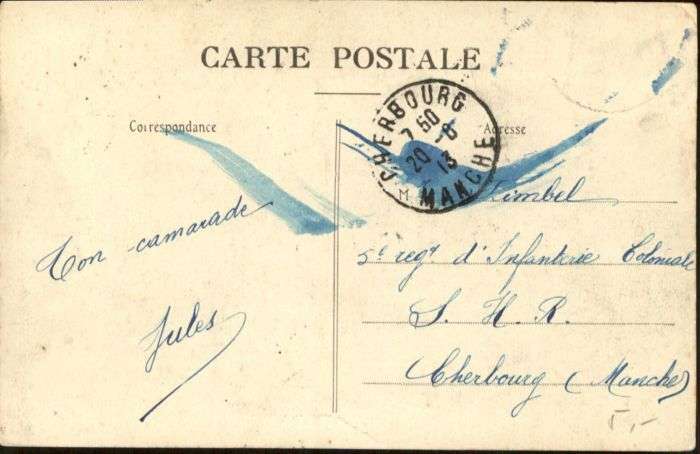 CARTE POSTALE
Correspondance
Adresse
CHERBOURG
7 50
20 -6
13
MANCHE
Ton camarade
Jules
Limbel
5e regt d'Infanterie Coloniale
S. H. R.
Cherbourg (Manche)
5,-